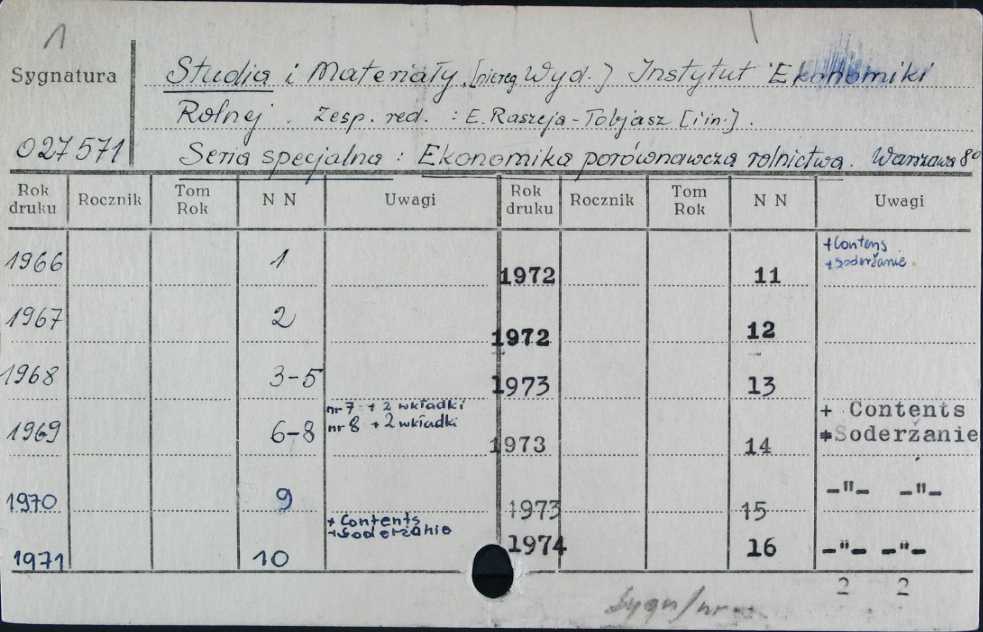 1
Sygnatura
Studia i Materiały. [niereg Wyd.] Instytut Ekonomiki
Rolnej. Zesp. red. : E. Raszeja-Tobjasz [i in.].
027571
Seria specjalna : Ekonomika porównawcza rolnictwa. Warszawa 8°
Rok druku Rocznik Tom Rok N N Uwagi Rok druku Rocznik Tom Rok N N Uwagi
1966 1 1972 11 + Contens
+ Soderžanie
1967 2 1972 12
1968 3-5 1973 13
nr 7 + 2 wkładki
1969 6-8 nr 8 + 2 wkładki 1973 14 + Contents
+ Soderžanie
1970 9 1973 15 -"- -"-
+ Contents
+ Soderžanie
1971 10 1974 16 -"- -"-
2 2
Sygn/nr